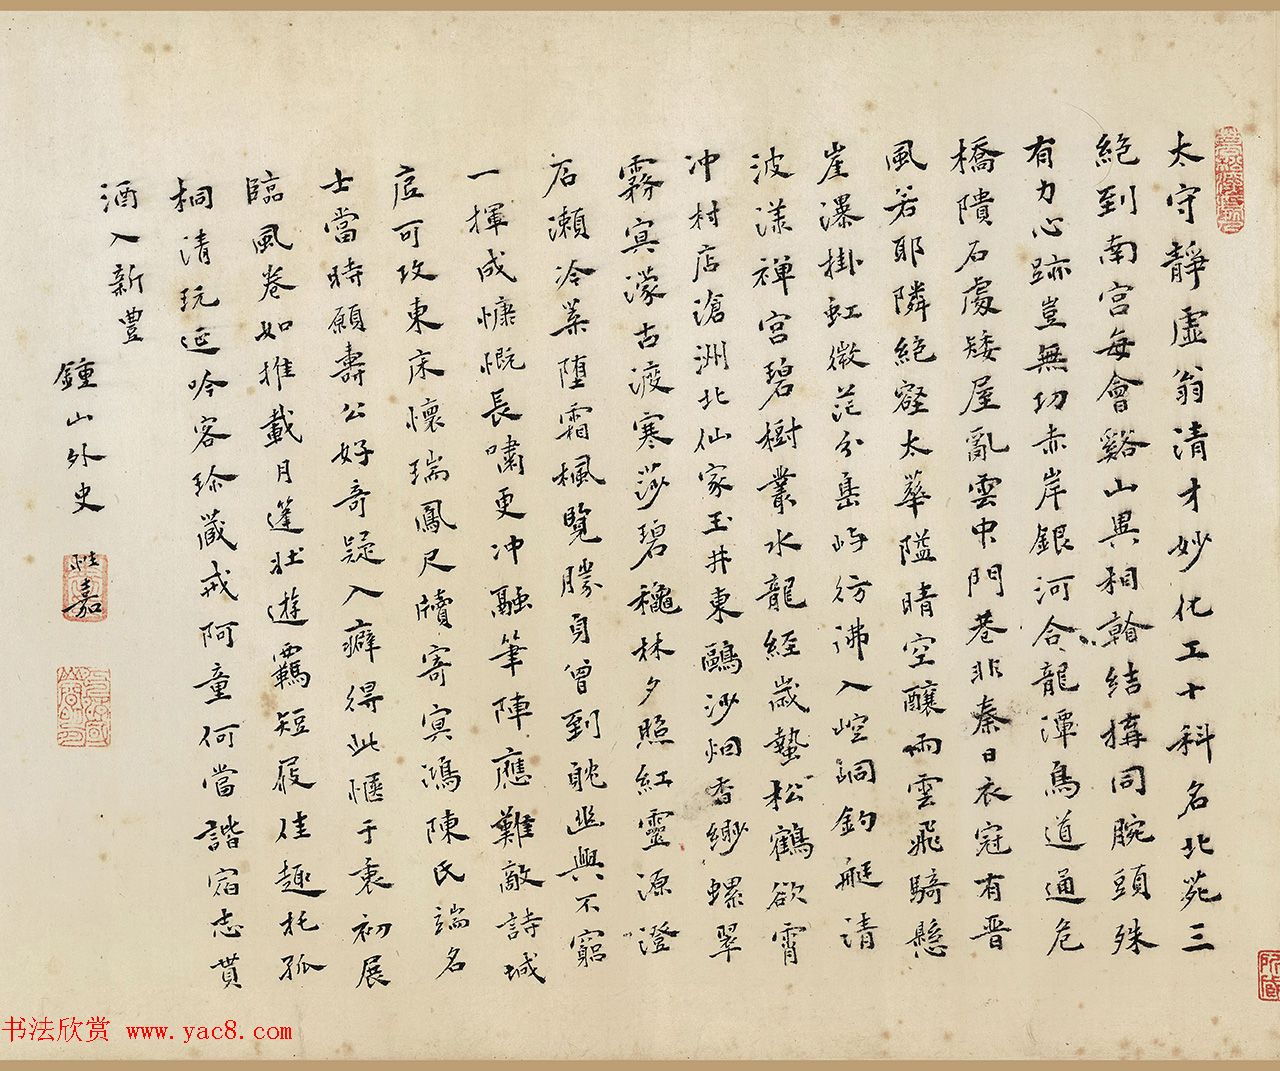 太守靜虛翁清才妙化工十科名北苑三
絕到南宮每會谿山異相翰結構同腕頭殊
有力心跡豈無功赤岸銀河合龍潭鳥道通危
橋隤石處矮屋亂雲中門巷非秦日衣冠有晉
風若耶隣絕壑太華隘晴空釀雨雲飛騎懸
崖瀑掛虹微茫分島嶼彷彿入崆峒釣艇清
波漾禪宮碧樹叢水龍經歲蟄松鶴欲霄
冲村店滄洲北仙家玉井東鷗沙烟杳緲螺翠
霧冥濛古渡寒莎碧穐林夕照紅靈源澄
石瀨冷葉墮霜楓覽勝身曾到耽幽興不窮
一揮成慷慨長嘯更冲融筆陣應難敵詩城
詎可攻東床懷瑞鳳尺牘寄冥鴻陳氏端名
士當時願壽公好奇疑入癖得此愜于衷初展
臨風卷如推載月篷壯遊羈短屐佳趣托孤
桐清玩延吟客珍藏戒阿童何當諧宿志貰
酒入新豊
鍾山外史
嘉
书法欣赏 www.yac8.com